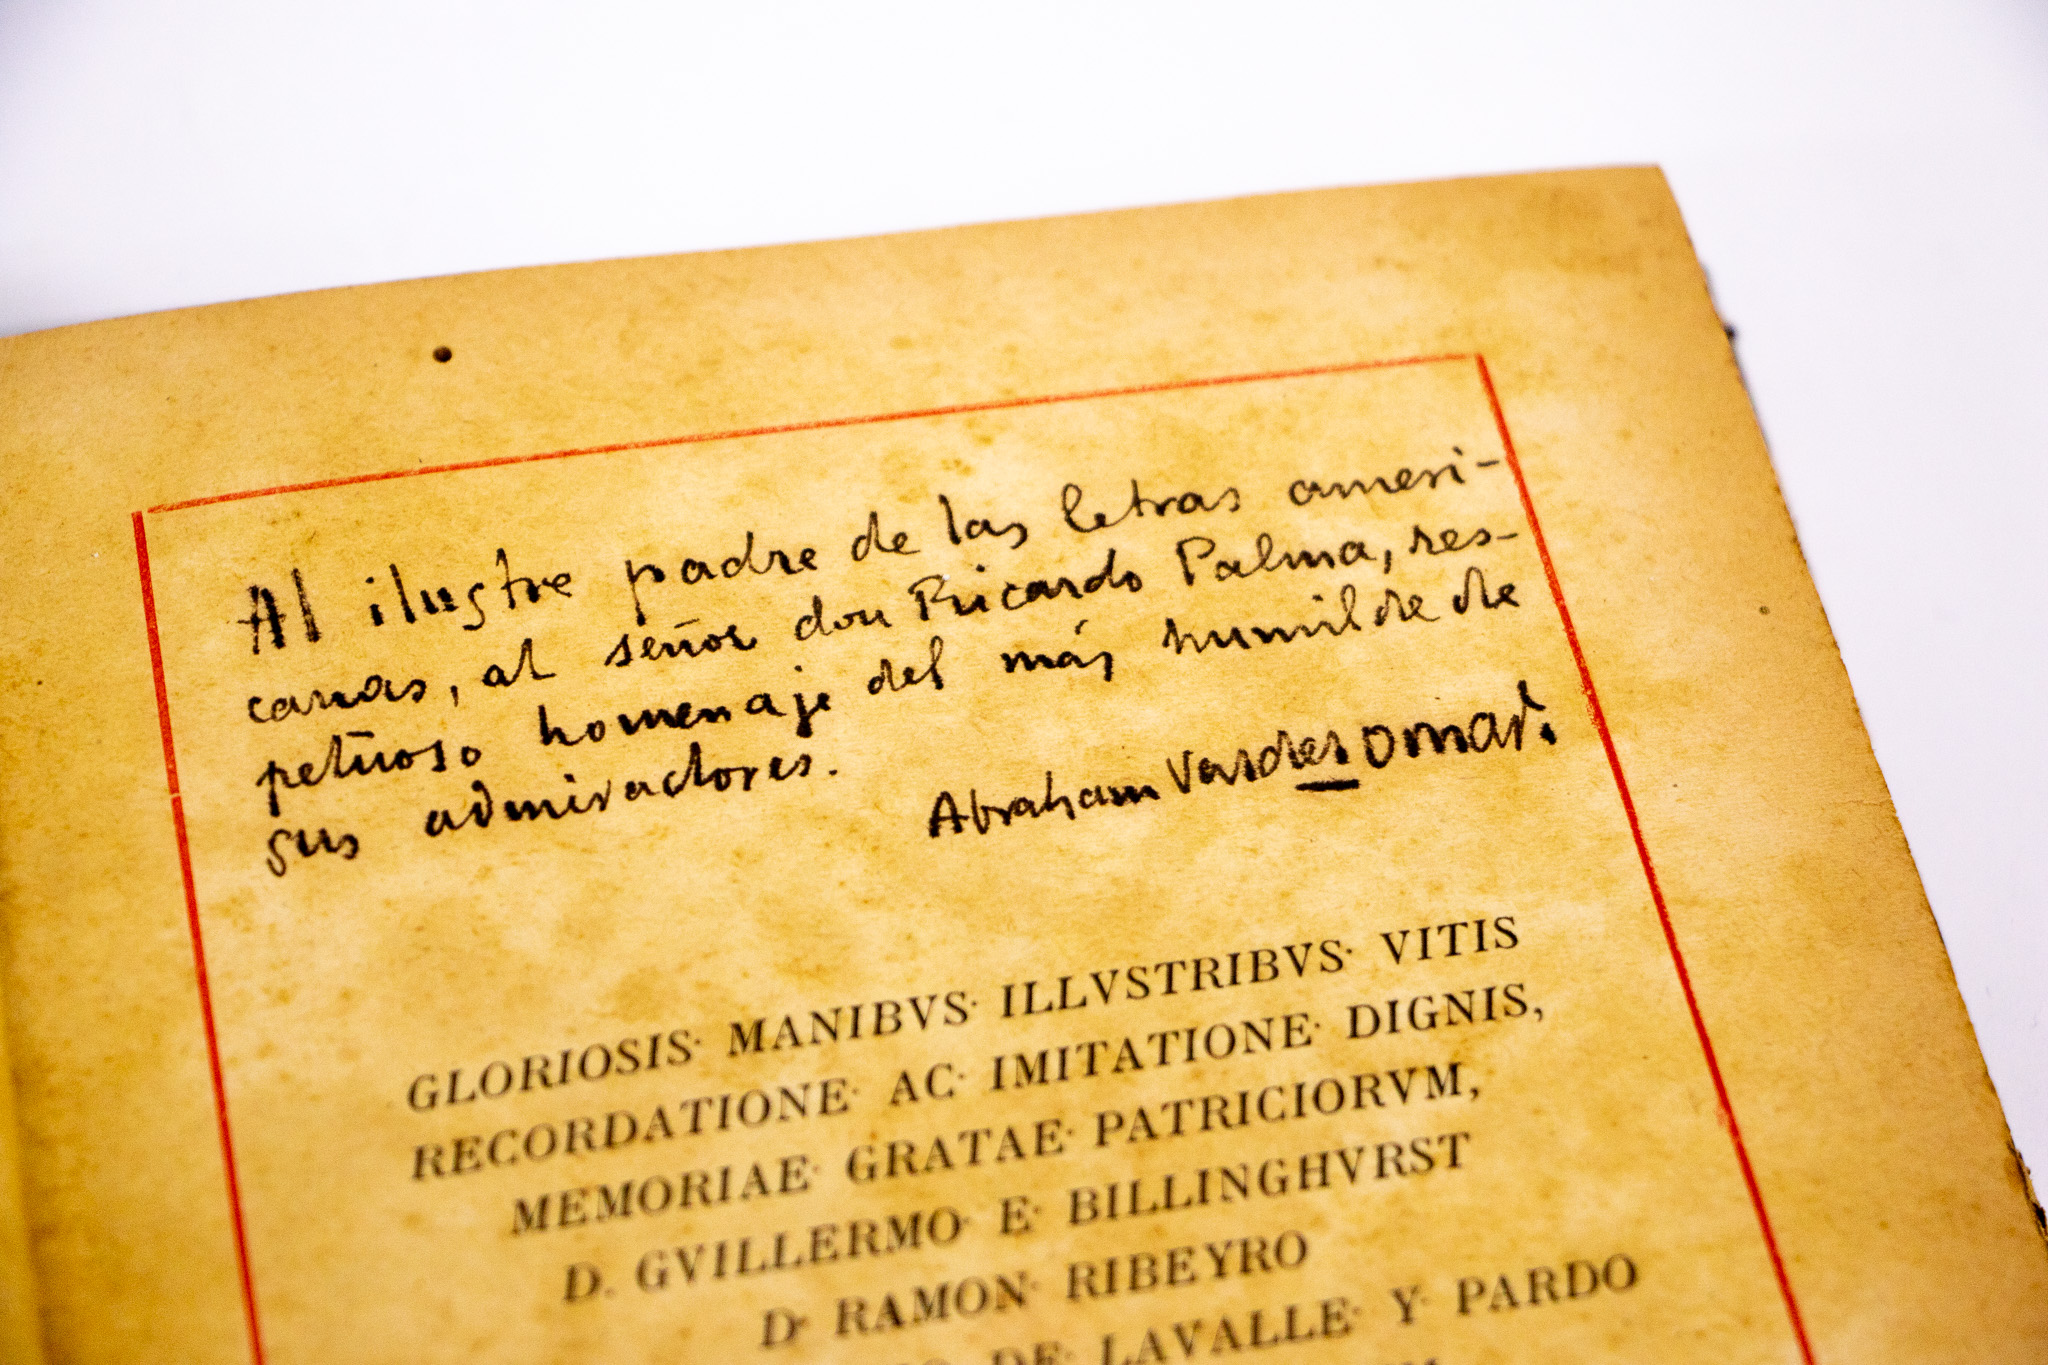 Al ilustre padre de las letras ameri-
canas, al señor don Ricardo Palma, res-
petuoso homenaje del más humilde de
sus admiradores.
Abraham Valdelomar.
GLORIOSIS· MANIBVS· ILLVSTRIBVS· VITIS
RECORDATIONE· AC· IMITATIONE· DIGNIS,
MEMORIAE· GRATAE· PATRICIORVM,
D. GVILLERMO· E· BILLINGHVRST
Dr RAMON· RIBEYRO
DE· LAVALLE· Y· PARDO